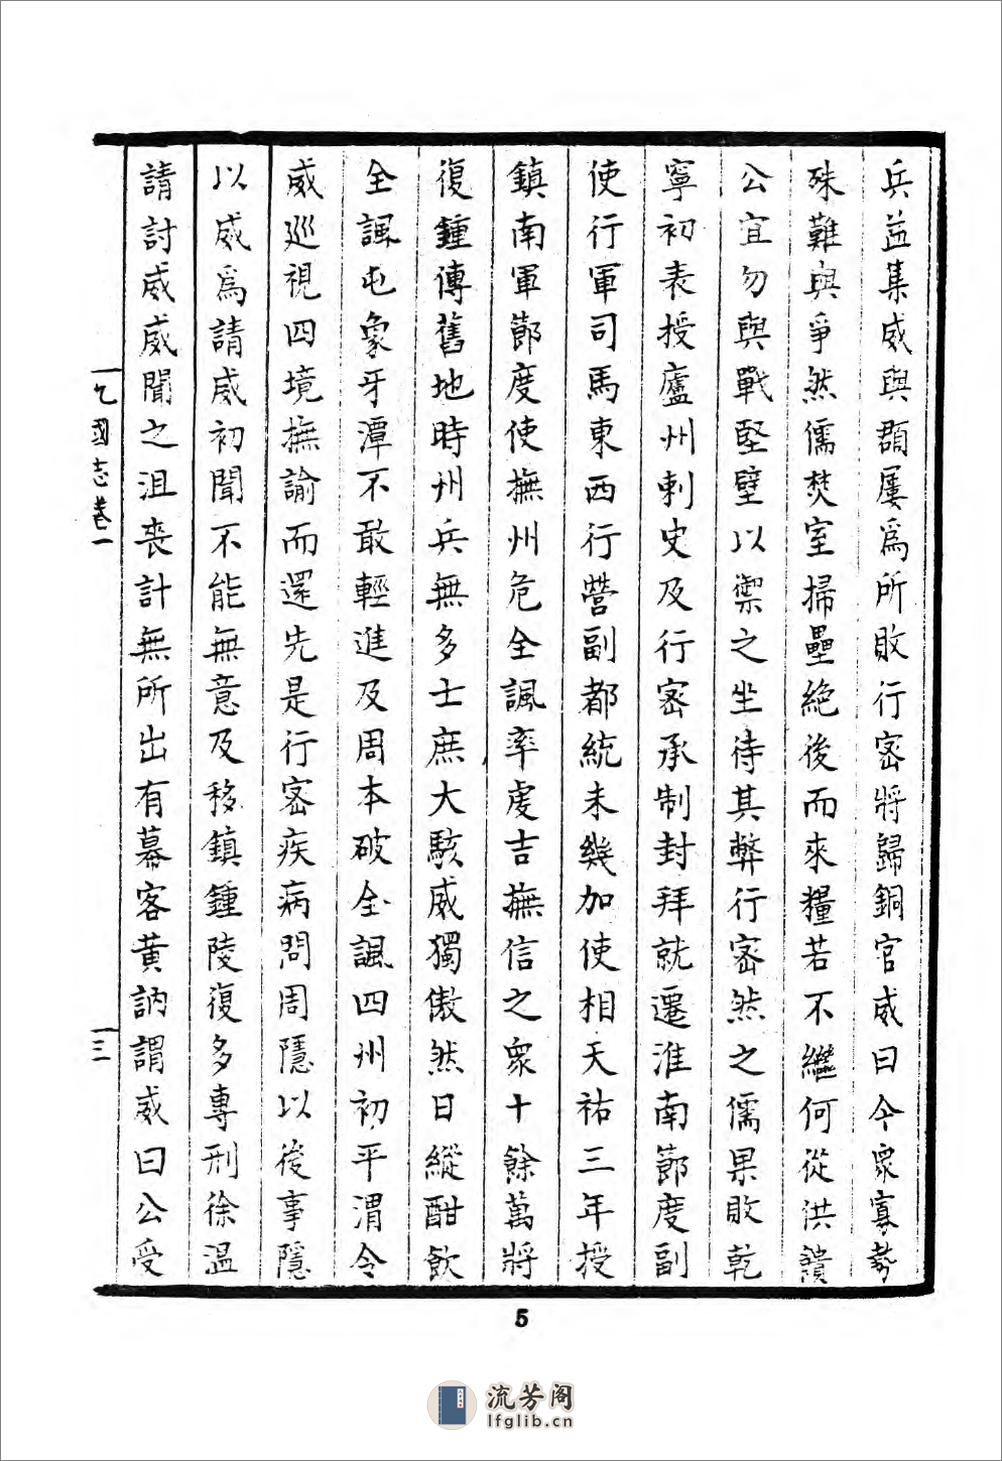 兵益集威與頵屢爲所敗行密將歸銅官威曰今衆寡勢
殊難與爭然儒焚室掃壘絶後而來糧若不繼何從洪饋
公宜勿與戰堅壁以禦之坐待其弊行密然之儒果敗乾
寧初表授廬州刺史及行密承制封拜就遷淮南節度副
使行軍司馬東西行營副都統未幾加使相天祐三年授
鎮南軍節度使撫州危全諷率虔吉撫信之衆十餘萬將
復鍾傳舊地時州兵無多士庶大駭威獨傲然日縱酣飲
全諷屯象牙潭不敢輕進及周本破全諷四州初平渭令
威巡視四境撫諭而還先是行密疾病問周隱以後事隱
以威爲請威初聞不能無意及移鎮鍾陵復多專刑徐温
請討威威聞之沮喪計無所出有幕客黄訥謂威曰公受
九國志卷一
三
5
流芳阁
lfglib.cn